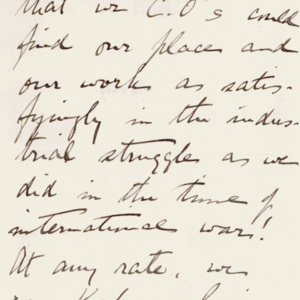 that we C.O's could
find our places and
our work as satis-
fyingly in the indus-
trial struggle as we
did in the time of
international war!
At any rate, we